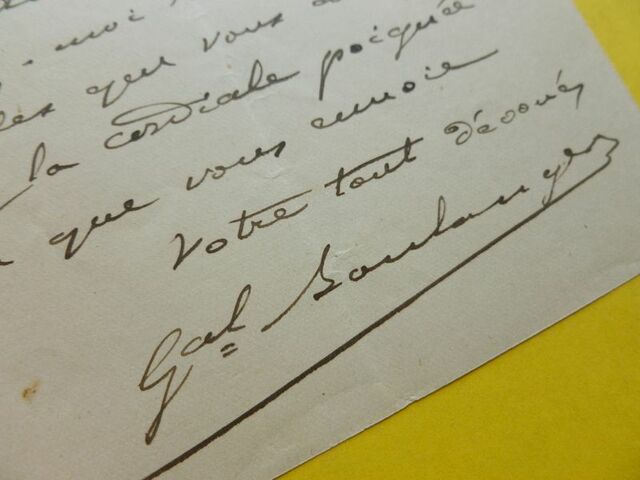 moi,
que vous
la cordiale poignée
que vous envoie
Votre tout dévoué,
Gal Boulanger